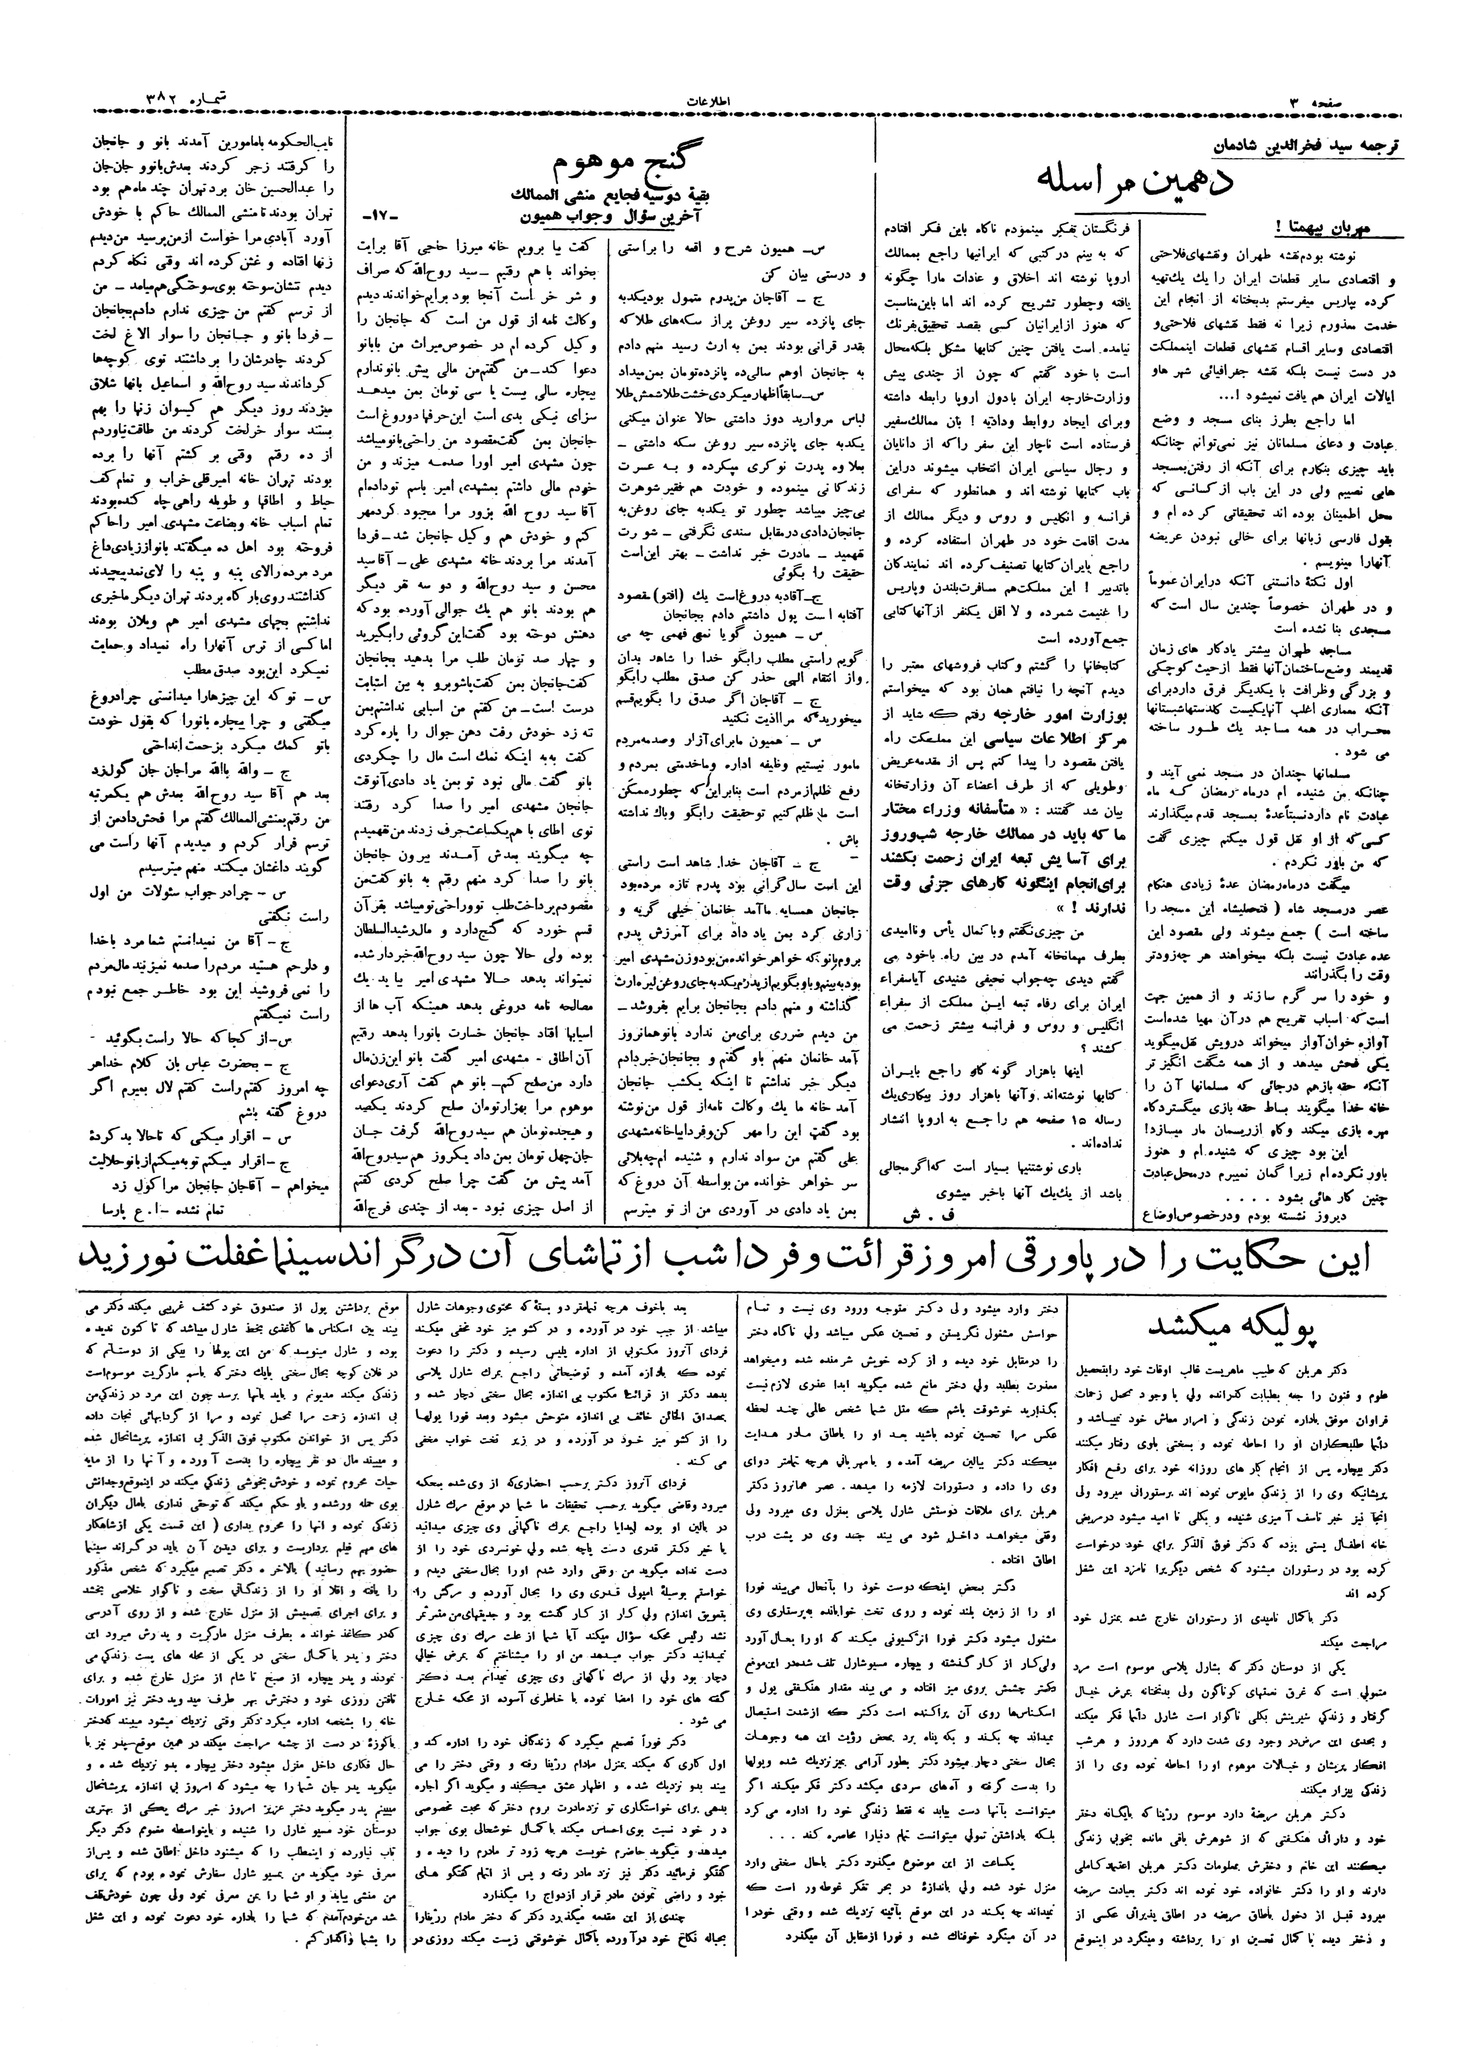 صفحه ۳
اطلاعات
شماره ۳۸۲
ترجمه سید فخرالدین شادمان
دهمین مراسله
مهربان بیهمتا !
نوشته بودم نقشه طهران و نقشهای فلاحتی
و اقتصادی سایر قطعات ایران را یك یك تهیه
کرده بپاریس میفرستم بدبختانه از انجام این
خدمت معذورم زیرا نه فقط نقشهای فلاحتی و
اقتصادی وسایر اقسام نقشهای قطعات اینمملکت
در دست نیست بلکه نقشه جغرافیائی شهر هاو
ایالات ایران هم یافت نمیشود !...
اما راجع بطرز بنای مسجد و وضع
عبادت و دعای مسلمانان نیز نمی‌توانم چنانکه
باید چیزی بنگارم برای آنکه از رفتن بمسجد
هابی نصیبم ولی در این باب از کسانی که
محل اطمینان بوده اند تحقیقاتی کرده ام و
بقول فارسی زبانها برای خالی نبودن عریضه
آنهارا مینویسم .
اول نکتهٔ دانستنی آنکه درایران عموماً
و در طهران خصوصاً چندین سال است که
مسجدی بنا نشده است
مساجد طهران بیشتر یادگار های زمان
قدیمند وضع ساختمان آنها فقط ازحیث کوچکی
و بزرگی وظرافت با یکدیگر فرق دارد برای
آنکه معماری اغلب آنها یکیست گلدستها شبستانها
محراب در همه مساجد یك طور ساخته
می شود .
مسلمانها چندان در مسجد نمی آیند و
چنانکه من شنیده ام در ماه رمضان که ماه
عبادت نام دارد نسبتاً عدهٔ بمسجد قدم میگذارند
کسی که از او نقل قول میکنم چیزی گفت
که من باور نکردم .
میگفت در ماه رمضان عدهٔ زیادی هنگام
عصر در مسجد شاه ( فتحعلیشاه این مسجد را
ساخته است ) جمع میشوند ولی مقصود این
عده عبادت نیست بلکه میخواهند هر چه زودتر
وقت را بگذرانند
و خود را سر گرم سازند و از همین جهت
است که اسباب تفریح هم در آن مهیا شده است
آوازه خوان آواز میخواند درویش نقل میگوید
یکی فحش میدهد و از همه شگفت انگیز تر
آنکه حقه بازهم درجائی که مسلمانها آن را
خانه خدا میگویند بساط حقه بازی میگسترد گاه
مهره بازی میکند و گاه از ریسمان مار میسازد!
این بود چیزی که شنیده ام و هنوز
باور نکرده ام زیرا گمان نمیبرم در محل عبادت
چنین کار هائی بشود . . . .
دیروز نشسته بودم ودرخصوص اوضاع
فرنگستان تفکر مینمودم ناگاه باین فکر افتادم
که به بینم در کتبی که ایرانیها راجع بممالك
اروپا نوشته اند اخلاق و عادات مارا چگونه
یافته وچطور تشریح کرده اند اما باین مناسبت
که هنوز از ایرانیان کسی بقصد تحقیق بفرنگ
نیامده است یافتن چنین کتابها مشکل بلکه محال
است با خود گفتم که چون از چندی پیش
وزارت خارجه ایران بادول اروپا رابطه داشته
وبرای ایجاد روابط ودادیه ! بآن ممالك سفیر
فرستاده است ناچار این سفرا که از دانایان
و رجال سیاسی ایران انتخاب میشوند در این
باب کتابها نوشته اند و همانطور که سفرای
فرانسه و انگلیس و روس و دیگر ممالك از
مدت اقامت خود در طهران استفاده کرده و
راجع بایران کتابها تصنیف کرده اند نمایندگان
باتدبیر ! این مملکت هم مسافرت بلندن و پاریس
را غنیمت شمرده و لا اقل یکنفر از آنها کتابی
جمع آورده است
کتابخانها را گشتم و کتاب فروشهای معتبر را
دیدم آنچه را نیافتم همان بود که میخواستم
بوزارت امور خارجه رفتم که شاید از
مرکز اطلاعات سیاسی این مملکت راه
یافتن مقصود را پیدا کنم پس از مقدمه عریض
وطویلی که از طرف اعضاء آن وزارتخانه
بیان شد گفتند : « متأسفانه وزراء مختار
ما که باید در ممالك خارجه شب وروز
برای آسایش تبعه ایران زحمت بکشند
برای انجام اینگونه کارهای جزئی وقت
ندارند ! »
من چیزی نگفتم وباکمال یأس وناامیدی
بطرف مهمانخانه آمدم در بین راه. باخود می
گفتم دیدی چه جواب نحیفی شنیدی آیا سفراء
ایران برای رفاه تبعه این مملکت از سفراء
انگلیس و روس و فرانسه بیشتر زحمت می
کشند ؟
اینها باهزار گونه کار راجع بایران
کتابها نوشته‌اند وآنها باهزار روز بیکاری یك
رساله ۱۵ صفحه هم راجع به اروپا انتشار
نداده‌اند .
باری نوشتنیها بسیار است که اگر مجالی
باشد از یك یك آنها باخبر میشوی
ف . ش
گنج موهوم
بقیة دوسیه فجایع منشی الممالك
آخرین سؤال وجواب همیون
-۱۷-
س ــ همیون شرح و اقعه را براستی
و درستی بیان کن
ج ــ آقاجان من پدرم متمول بود یکدبه
جای پانزده سیر روغن پراز سکه‌های طلا که
بقدر قرانی بودند بمن به ارث رسید منهم دادم
به جانجان اوهم سالی ده پانزده تومان بمن میداد
س ــ سابقاً اظهار میکردی خشت طلا شمش طلا
لباس مروارید دوز داشتی حالا عنوان میکنی
یکدبه جای پانزده سیر روغن سکه داشتی ــ
بعلاوه پدرت نوکری میکرده و به عسرت
زندگانی مینموده و خودت هم فقیر شوهرت
بی‌چیز میباشد چطور تو یکدبه جای روغن به
جانجان دادی در مقابل سندی نگرفتی ــ شوهرت
نفهمید ــ مادرت خبر نداشت ــ بهتر این‌است
حقیقت را بگوئی
ج ــ آقا دبه دروغ است یك (آفتو) مقصود
آفتابه است پول داشتم دادم بجانجان
س ــ همیون گویا نمی فهمی چه می
گویم راستی مطلب رابگو خدا را شاهد بدان
واز انتقام الهی حذر کن صدق مطلب رابگو
ج ــ آقاجان اگر صدق را بگویم قسم
میخورید که مرا اذیت نکنید
س ــ همیون ما برای آزار وصدمه مردم
مامور نیستیم وظیفه اداره وما خدمتی بمردم و
رفع ظلم از مردم است بنابراین که چطور ممکن
است ما ظلم کنیم تو حقیقت رابگو وباك نداشته
باش .
ج ــ آقاجان خدا شاهد است راستی
این است سال گرانی بود پدرم تازه مرده بود
جانجان همسایه ما آمد خانمان خیلی گریه و
زاری کرد بمن یاد داد برای آمرزش پدرم
بروم بانو که خواهر خوانده من بود وزن مشهدی امیر
بود به بینم و باو بگویم از پدرم یکدبه جای روغن لیره ارث
گذاشته و منهم دادم بجانجان برایم بفروشد ــ
من دیدم ضرری برای من ندارد بانو همانروز
آمد خانمان منهم باو گفتم و بجانجان خبر دادم
دیگر خبر نداشتم تا اینکه یکشب جانجان
آمد خانه ما یك وکالت نامه از قول من نوشته
بود گفت این را مهر کن و فردا بیا خانه مشهدی
علی گفتم من سواد ندارم و شنیده ام چه بلائی
سر خواهر خوانده من بواسطه آن دروغ که
بمن یاد دادی در آوردی من از تو میترسم
گفت بیا برویم خانه میرزا حاجی آقا برایت
بخواند باهم رفتیم ــ سید روح الله که صراف
و شر خر است آنجا بود برایم خواندند دیدم
وکالت نامه از قول من است که جانجان را
وکیل کرده ام در خصوص میراث من بابانو
دعوا کند ــ من گفتم من مالی پیش بانو ندارم
بیچاره سالی بیست یا سی تومان بمن میدهد
سزای نیکی بدی است این حرفها دروغ است
جانجان بمن گفت مقصود من راحتی بانو میباشد
چون مشهدی امیر اورا صدمه میزند و من
خودم مالی داشتم بمشهدی امیر باسم تو داده‌ام
آقا سید روح الله بزور مرا مجبور کرد مهر
کنم و خودش هم وکیل جانجان شد ــ فردا
آمدند مرا بردند خانه مشهدی علی ــ آقا سید
محسن و سید روح الله و دو سه نفر دیگر
هم بودند بانو هم یك جوالی آورده بود که
دهنش دوخته بود گفت این گروئی رابگیرید
و چهار صد تومان طلب مرا بدهید بجانجان
گفت جانجان بمن گفت باشوبرو به بین اسبابت
درست است ــ من گفتم من اسبابی نداشتم بمن
ته زد خودش رفت دهن جوال را پاره کرد
گفت به‌به اینکه نمك است مال را چکردی
بانو گفت مالی نبود تو بمن یاد دادی آنوقت
جانجان مشهدی امیر را صدا کرد رفتند
توی اطاق با هم یکساعت حرف زدند من نفهمیدم
چه میگویند بعدش آمدند بیرون جانجان
بانو را صدا کرد منهم رفتم به بانو گفت من
مقصودم پرداخت طلب تو و راحتی تو میباشد بقرآن
قسم خورد که گنج دارد و مال رشیدالسلطان
بوده ولی حالا چون سید روح الله خبردار شده
نمیتواند بدهد حالا مشهدی امیر بیاید یك
مصالحه نامه دروغی بدهد همینکه آب ها از
اسیابها افتاد جانجان خسارت بانورا بدهد رفتیم
آن اطاق ــ مشهدی امیر گفت بانو این زن مال
دارد من صلح کنم ــ بانو هم گفت آری دعوای
موهوم مرا بهزار تومان صلح کردند یکصد
و هیجده تومان هم سید روح الله گرفت جان
جان چهل تومان بمن داد یکروز هم سید روح الله
آمد پیش من گفت چرا صلح کردی گفتم
از اصل چیزی نبود ــ بعد از چندی فرج الله
نایب الحکومه بامامورین آمدند بانو و جانجان
را گرفتند زجر کردند بعدش بانوو جان جان
را عبدالحسین خان برد تهران چند ماه هم بود
تهران بودند تا منشی الممالك حاکم با خودش
آورد آبادی مرا خواست از من پرسید من دیدم
زنها افتاده و غش کرده اند وقتی نگاه کردم
دیدم تنشان سوخته بوی سوختگی هم میامد ــ من
از ترسم گفتم من چیزی ندارم دادم بجانجان
ــ فردا بانو و جانجان را سوار الاغ لخت
کردند چادرشان را بر داشتند توی کوچه‌ها
گرداندند سید روح الله و اسماعیل بانها شلاق
میزدند روز دیگر هم گیسوان زنها را بهم
بستند سوار خر لخت کردند من طاقت نیاوردم
از ده رفتم وقتی بر گشتم آنها را برده
بودند تهران خانه امیرقلی خراب و تمام کف
حیاط و اطاقها و طویله راهی چاه کنده بودند
تمام اسباب خانه وبضاعت مشهدی امیر را حاکم
فروخته بود اهل ده میگفتند بانو از زیادی داغ
مرد مرده را لای پنبه و پنبه را لای نمد پیچیدند
گذاشتند روی بارگاه بردند تهران دیگر ما خبری
نداشتیم بچهای مشهدی امیر هم ویلان بودند
اما کسی از ترس آنهارا راه نمیداد وحمایت
نمیکرد این بود صدق مطلب
س ــ تو که این چیزهارا میدانستی چرا دروغ
میگفتی و چرا بیچاره بانورا که بقول خودت
باتو کمك میکرد بزحمت انداختی
ج ــ والله بالله مرا جان جان گول زد
بعد هم آقا سید روح الله بعدش هم یکمرتبه
من رفتم بمنشی الممالك گفتم مرا فحش داد من از
ترسم فرار کردم و میدیدم آنها راست می
گویند داغشان میکنند منهم میترسیدم
س ــ چرا در جواب سئولات من اول
راست نگفتی
ج ــ آقا من نمیدانستم شما مرد باخدا
و دلرحم هستید مردم را صدمه نمیزنید مال مردم
را نمی فروشید این بود خاطر جمع نبودم
راست نمیگفتم
س ــ از کجا که حالا راست بگوئید -
ج ــ بحضرت عباس بان کلام خدا هر
چه امروز گفتم راست گفتم لال بمیرم اگر
دروغ گفته باشم
س ــ اقرار میکنی که تا حالا بد کردهٔ
ج ــ اقرار میکنم توبه میکنم از بانو حلالیت
میخواهم ــ آقاجان جانجان مرا گول زد
تمام نشده ــ ا. ع پارسا
این حکایت را در پاورقی امروز قرائت و فردا شب از تماشای آن در گراند سینما غفلت نورزید
پولیکه میکشد
دکتر هربلن که طبیب ماهریست غالب اوقات خود رابتحصیل
علوم و فنون را جعه بطبابت گذرانده ولی با وجود تحمل زحمات
فراوان موفق باداره نمودن زندگی و امرار معاش خود نمیباشد و
دائماً طلبکاران او را احاطه نموده و بسختی باوی رفتار میکنند
دکتر بیچاره پس از انجام کار های روزانه خود برای رفع افکار
پریشانیکه وی را از زندگی مایوس نموده اند برستورانی میرود ولی
آنجا نیز خبر تاسف آمیزی شنیده و بکلی نا امید میشود در مریض
خانه اطفال پستی بوده که دکتر فوق الذکر برای خود درخواست
کرده بود در رستوران میشنود که شخص دیگریرا نامزد این شغل
کرده اند
دکتر باکمال نامیدی از رستوران خارج شده بمنزل خود
مراجعت میکند
یکی از دوستان دکتر که بشارل پلاسی موسوم است مرد
متمولی است که غرق نعمتهای گوناگون ولی بدبختانه بمرض خیال
گرفتار و زندگی شیرینش بکلی ناگوار است شارل دائماً فکر میکند
و بحدی این مرض در وجود وی شدت دارد که هر روز و هر شب
افکار پریشان و خیالات موهوم او را احاطه نموده وی را از
زندگی بیزار میکنند
دکتر هربلن مریضهٔ دارد موسوم رژینا که بایگانه دختر
خود و دارائی هنگفتی که از شوهرش باقی مانده بخوبی زندگی
میکنند این خانم و دخترش بمعلومات دکتر هربلن اعتماد کاملی
دارند و او را دکتر خانواده خود نموده اند دکتر بعیادت مریضه
میرود قبل از دخول باطاق مریضه در اطاق پذیرائی عکسی از
و دختر دیده با کمال تحسین او را برداشته و مینگرد در اینموقع
دختر وارد میشود ولی دکتر متوجه ورود وی نیست و تمام
حواسش مشغول نگریستن و تحسین عکس میباشد ولی ناگاه دختر
را در مقابل خود دیده و از کرده خویش شرمنده شده ومیخواهد
معذرت بطلبد ولی دختر مانع شده میگوید ابدا عذری لازم نیست
بگذارید خوشوقت باشم که مثل شما شخص عالی چند لحظه
عکس مرا تحسین نموده باشید بعد او را باطاق مادر هدایت
میکند دکتر ببالین مریضه آمده و بامهربانی هرچه تمامتر دوای
وی را داده و دستورات لازمه را میدهد. عصر همانروز دکتر
هربلن برای ملاقات دوستش شارل پلاسی بمنزل وی میرود ولی
وقتی میخواهد داخل شود می بیند جسد وی در پشت درب
اطاق افتاده .
دکتر بمحض اینکه دوست خود را بآنحال می‌بیند فورا
او را از زمین بلند نموده و روی تخت خوابانده به پرستاری وی
مشغول میشود دکتر فورا انژکسیونی میکند که او را بحال آورد
ولی کار از کار گذشته و بیچاره مسیو شارل تلف شده در این موقع
دکتر چشمش بروی میز افتاده و می بیند مقدار هنگفتی پول و
اسکناس‌ها روی آن پراکنده است دکتر که از شدت استیصال
نمیداند چه بکند و بکه پناه برد بمحض رؤیت این همه وجوهات
بحال سختی دچار میشود دکتر بطور آرامی بمیز نزدیك شده وپولها
را بدست گرفته و آه‌های سردی میکشد دکتر فکر میکند اگر
میتوانست بآنها دست بیابد نه فقط زندگی خود را اداره می کرد
بلکه باداشتن تمولی میتوانست تمام دنیارا محاصره کند . . .
یکساعت از این موضوع میگذرد دکتر باحال سختی وارد
منزل خود شده ولی باندازهٔ در بحر تفکر غوطه‌ور است که
نمیداند چه بکند در این موقع بآئینه نزدیك شده و وقتی خود را
در آن مینگرد خوفناك شده و فورا از مقابل آن میگذرد
بعد باخوف هرچه تمامتر دو بستهٔ که محتوی وجوهات شارل
میباشد از جیب خود در آورده و در کشو میز خود مخفی میکند
فردای آنروز مکتوبی از اداره پلیس رسیده و دکتر را دعوت
نموده که باداره آمده و توضیحاتی راجع بمرك شارل پلاسی
بدهد دکتر از قرائت مکتوب بی اندازه بحال سختی دچار شده و
بمصداق الخائن خائف بی اندازه متوحش میشود وبعد فورا پولها
را از کشو میز خود در آورده و در زیر تخت خواب مخفی
می کند .
فردای آنروز دکتر برحسب احضاری که از وی شده بمحکمه
میرود وقاضی میگوید برحسب تحقیقات ما شما در موقع مرك شارل
در بالین او بوده لیدایا راجع بمرك ناگهانی وی چیزی میدانید
یا خیر دکتر قدری دست پاچه شده ولی خونسردی خود را از
دست نداده میگوید من وقتی وارد شدم اورا بحال سختی دیدم و
خواستم بوسیلهٔ امپولی قدری وی را بحال آورده و مرگش را
بتعویق اندازم ولی کار از کار گذشته بود و جدیتهای من مثمر ثمر
نشد رئیس محکمه سؤال میکند آیا شما از علت مرك وی چیزی
نمیدانید دکتر جواب میدهد من او را میشناختم که بمرض خیالی
دچار بود ولی از مرك ناگهانی وی چیزی نمیدانم بعد دکتر
گفته های خود را امضا نموده با خاطری آسوده از محکمه خارج
می شود .
دکتر فوراً تصمیم میگیرد که زندگانی خود را اداره کند و
اول کاری که میکند بمنزل مادام رژینا رفته و وقتی دختر را می
بیند بدو نزدیك شده و اظهار عشق میکند و میگوید اگر اجازه
بدهی برای خواستگاری تو نزد مادرت بروم دختر که محبت مخصوصی
در خود نسبت بوی احساس میکند باکمال خوشحالی بوی جواب
میدهد و میگوید حاضرم خوبست هرچه زود تر مادرم را دیده و
گفتگو فرمائید دکتر نیز نزد مادر رفته و پس از اتمام گفتگو های
خود و راضی نمودن مادر قرار ازدواج را میگذارد
چندی از این مقدمه میگذرد دکتر که دختر مادام رژینارا
بحباله نکاح خود درآورده باکمال خوشوقتی زیست میکند روزی در
موقع برداشتن پول از صندوق خود کشف غریبی میکند دکتر می
بیند بین اسکناس ها کاغذی بخط شارل میباشد که تا کنون ندیده
بوده و شارل مینویسد که من این پولها را بیکی از دوستانم که
در فلان کوچه بحال سختی بایك دختر که باسم مارگریت موسوم است
زندگی میکند مدیونم و باید بانها برسد چون این مرد در زندگی من
بی اندازه زحمت مرا متحمل نموده و مرا از گردابهائی نجات داده
دکتر پس از خواندن مکتوب فوق الذکر بی اندازه پریشانحال شده
و میبیند مال دو نفر بیچاره را بدست آورده و آنها را از مایه
حیات محروم نموده و خودش بخوشی زندگی میکند در اینموقع وجدانش
بوی حمله ور شده و باو حکم میکند که توحقی نداری بامال دیگران
زندگی نموده و آنها را محروم بداری ( این قسمت یکی از شاهکار
های مهم فیلم برداریست و برای دیدن آن باید در گراند سینما
حضور بهم رسانید ) بالاخره دکتر تصمیم میگیرد که شخص مذکور
را یافته و اقلا او را از زندگانی سخت و ناگوار خلاصی بخشد
و برای اجرای تصمیمش از منزل خارج شده و از روی آدرسی
که در کاغذ خوانده بطرف منزل مارگریت و پدرش میرود این
دختر و پدر باکمال سختی در یکی از محله های پست زندگی می
نمودند و پدر بیچاره از صبح تا شام از منزل خارج شده و برای
یافتن روزی خود و دخترش بهر طرف میدوید دختر نیز امورات
خانه را بشخصه اداره میکرد دکتر وقتی نزدیك میشود میبیند که دختر
باکوزهٔ در دست از چشمه مراجعت میکند در همین موقع پدر نیز با
حال فگاری داخل منزل میشود دختر بیچاره بدو نزدیك شده و
میگوید پدر جان شما را چه میشود که امروز بی اندازه پریشانحال
میبینم پدر میگوید دختر عزیزم امروز خبر مرك یکی از بهترین
دوستان خود مسیو شارل را شنیده و باینواسطه مغمومم دکتر دیگر
تاب نیاورده و اینمطلب را که میشنود داخل اطاق شده و پس از
معرفی خود میگوید من بمسیو شارل سفارش نموده بودم که برای
من منشی بیابد و او شما را بمن معرفی نمود ولی چون خودش تلف
شد من خودم آمدم که شما را باداره خود دعوت نموده و این شغل
را بشما واگذار کنم .